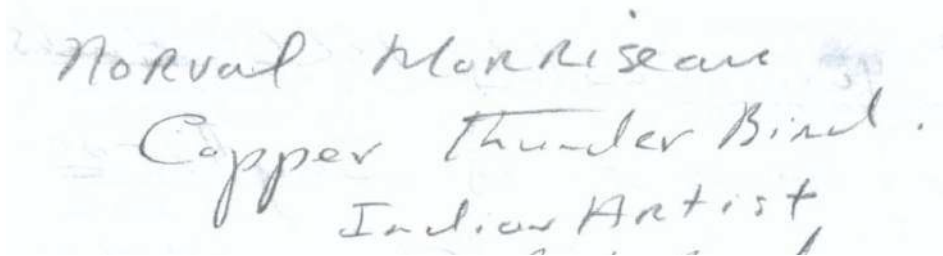 Norval Morriseau
Copper Thunder Bird.
Indian Artist